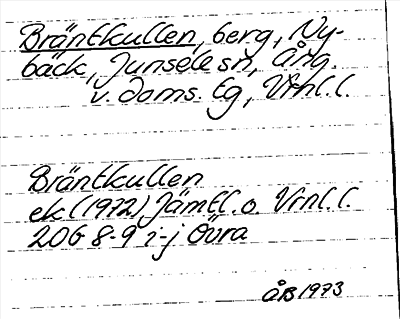 Bräntkullen, berg, Ny-
bäck, Junsele sn, Ång.
v. doms. lg, Vrnl. l.
Bräntkullen
ek (1972) Jämtl. o. Vrnl. l.
206 8-9 i-j Övra
ÅB 1973